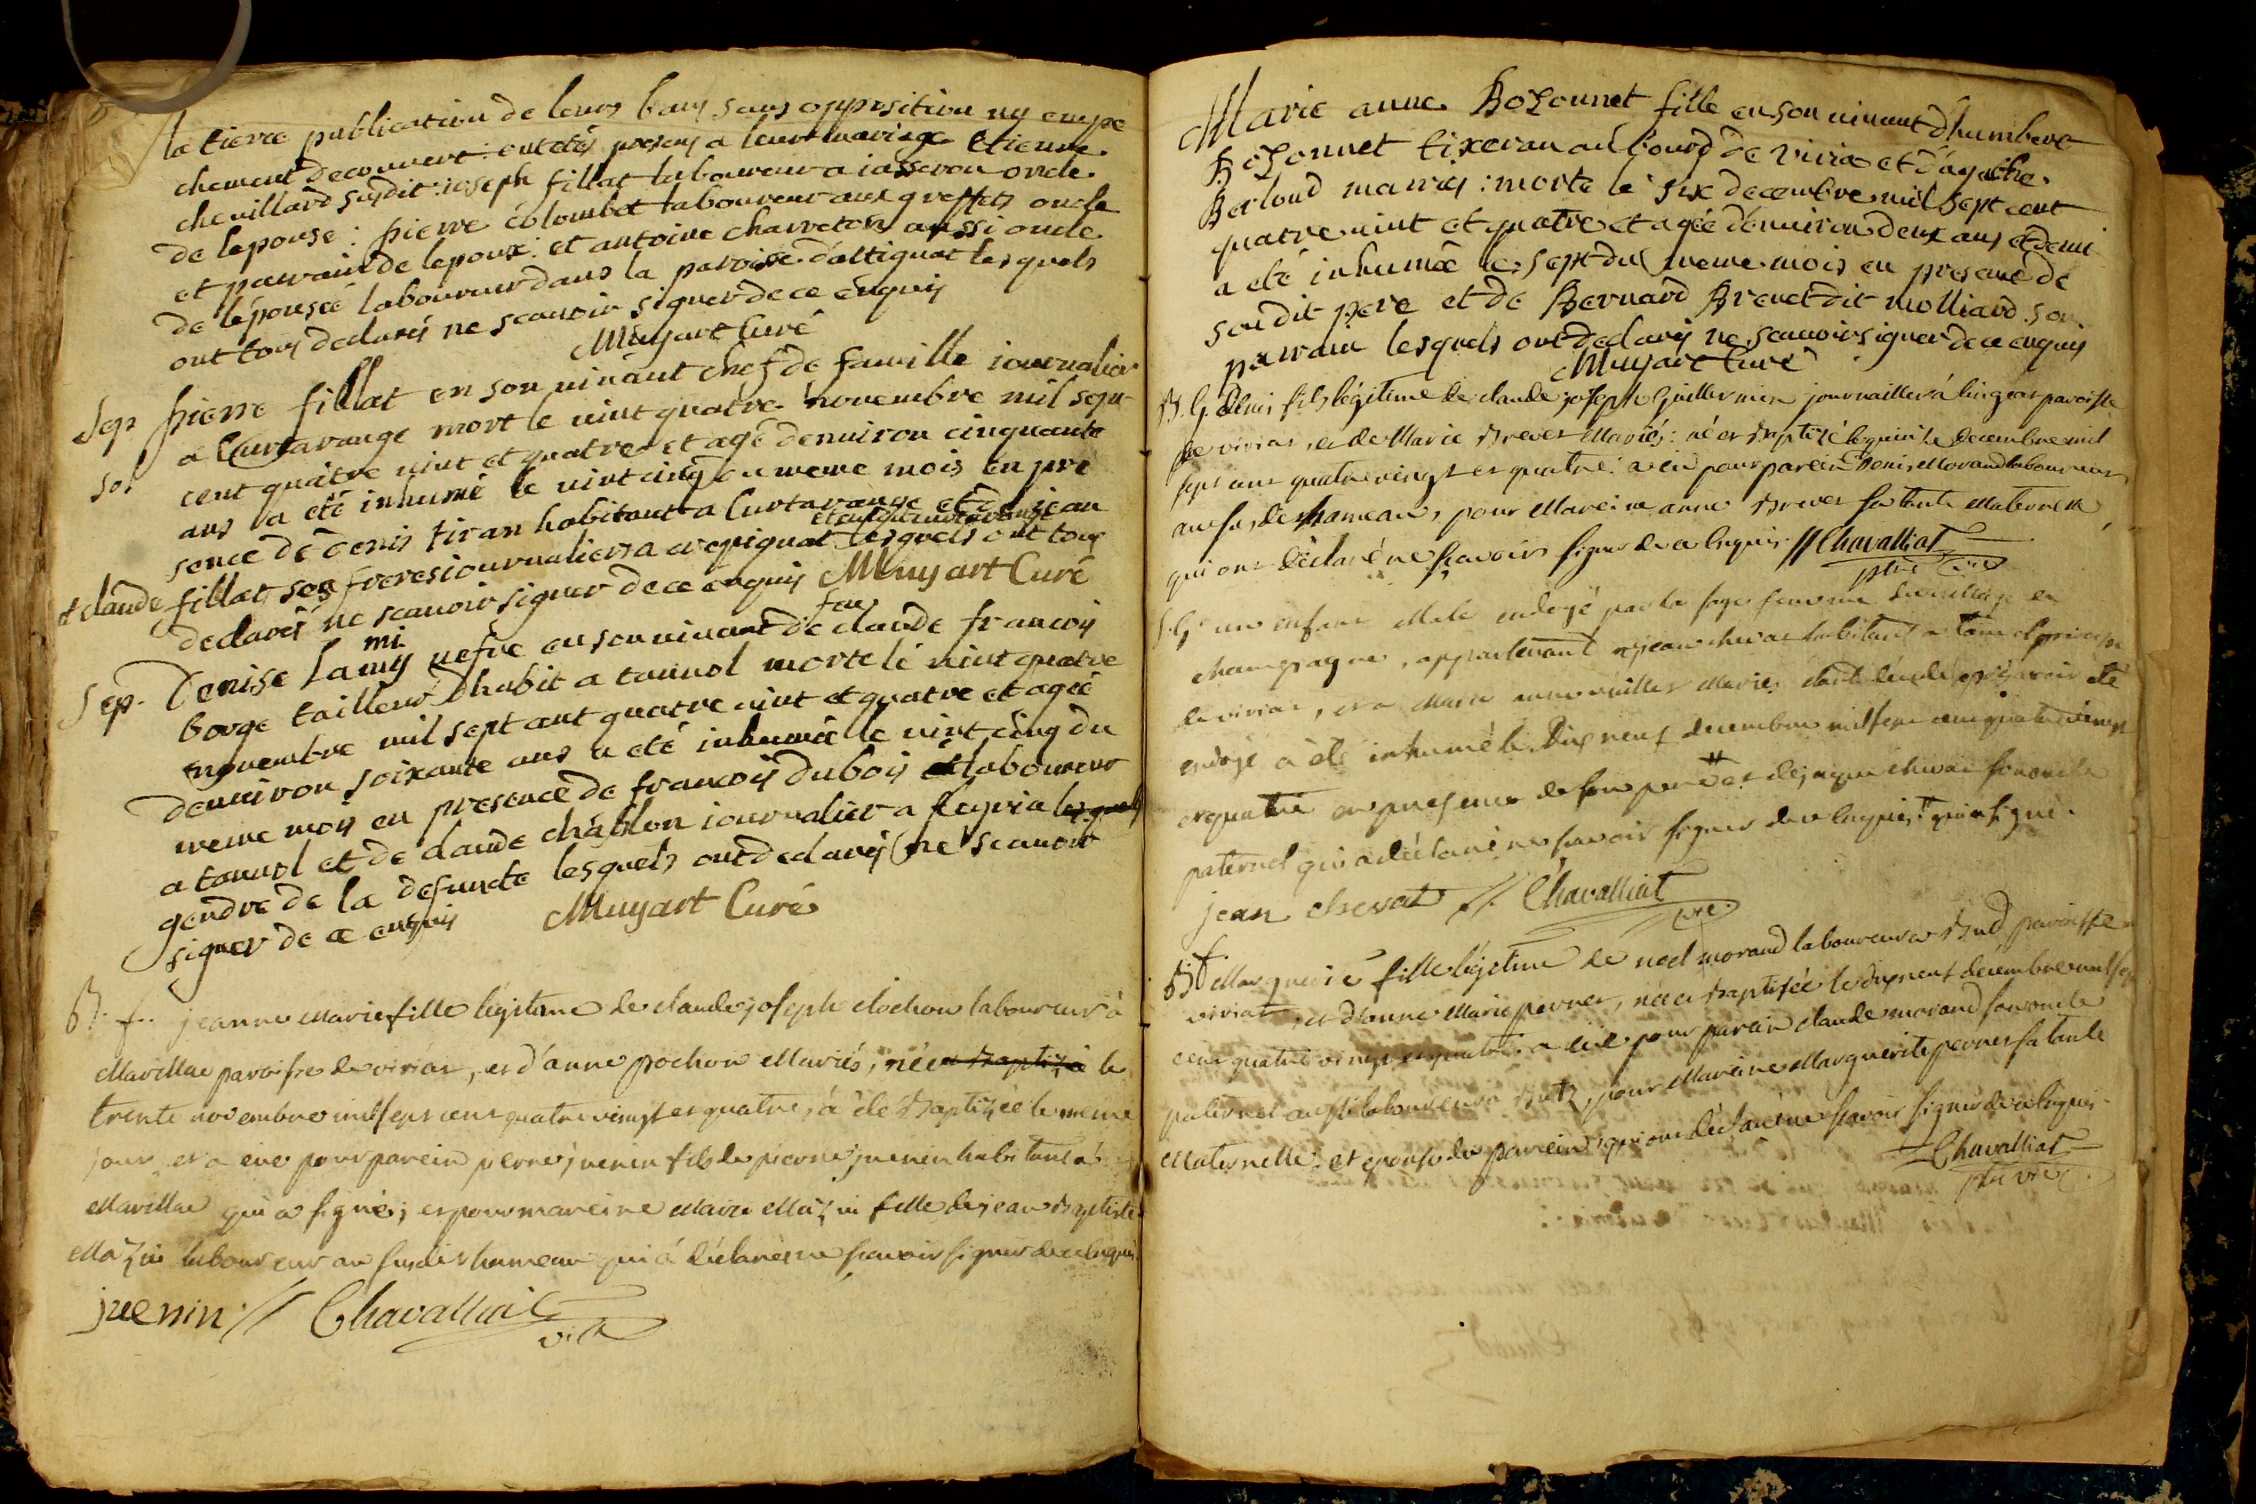 la tierce publication de leurs bans sans opposition ny empe
chement decouvert: ont etés presens a leur mariage Etienne
chevillard susdit: joseph fillat laboureur a iasseron oncle
de lepouse: pierre colombet laboureur aux greffets oncle
et parrain de lepoux: et antoine charreton aussi oncle
de lépousée laboureur dans la paroisse d'attignat lesquels
ont tous declarés ne scauoir signer de ce enquis
Muyart Curé
Sep pierre fillat en son uiuant chef de famille iournalier
a Curtarange mort le uint quatre novembre mil sept
cent quatre uint et quatre et agé denuiron cinquante
ans a été inhumé le uint cinq du meme mois en pre
sence de denis tiran habitant a Curtarange et de jean
et claude fillat ses freres iournaliers a lesquels ont tous
declarés ne scauoir signer de ce enquis Muyart Curé
feu
mi
Sep. Denise Lamy uefue en son uiuant de claude francois
borge tailleur dhabit a tannol morte le uint quatre
novembre mil sept ant quatre uint et quatre et agée
denuiron soixante ans a eté inhumée le uint cinq du
meme mois en presence de francois dubois laboureur
a tannol et de claude chablon iournalier a fleyria
gendre de la defuncte lesquels ont declarés ne scauoir
signer de ce enquis Muyart Curé
B. f. jeanne Marie fille légitime de claude joseph clochon laboureur à
Marillac paroisse de viriat, et d'anne pochon Mariés, née et baptizé le
trente novembre mil sept cent quatre vingt et quatre, a été baptizée le meme
jour et a eue pour parein pierre juenin fils de pierre juenin habitant à
Marillac qui a signé; et pour mareine Marie Mazui fille de jean Baptiste
Mazui laboureur au susdit hameau qui à déclaré ne scavoir signer de ce enquis
juenin // Chavalliat
vic
Marie anne Bozonnet fille en son uiuant d'humbert
Bozonnet tixeran au bourg de viria et d'agathe
Berloud mariés: morte le six decembre mil sept cent
quatre uint et quatre et agée d'enuiron deux ans et demi
a été inhumée le sept du meme mois en presence de
son dit pere et de Bernard Breuet dit molliard son
parrain lesquels ont declarés ne scauoir signer de ce enquis
Muyart Curé
B. G. denis fils légitime de claude joseph Guillermin journaillier à lingeat paroisse
de viriat, et de Marie Brevet Mariés: né et Baptizé le quinze decembre mil
sept cent quatre vingt et quatre: a eu pour parein Denis Morand laboureur
au susdit hameau, pour Mareine anne Brevet sa tante Maternelle
qui ont déclaré ne scavoir signer de ce enquis // Chavalliat
ptre vic
S. G. un enfant Male ondoyé par la sage femme du village de
champagne, appartenant à jean chevat habitant a
de viriat, et a Marie anne Mariés étant décedé après avoir été
ondoyé a été inhumé le dix neuf decembre mil sept cent quatre vingt
et quatre en presence de son pere et de jaque chevat son oncle
paternel qui a déclaré ne scavoir signer de ce enquis qui a signé.
jean chevat // Chavalliat
vic.
B. f. Marguerite fille légitime de noel morand laboureur a Bud paroisse
viriat, et d'anne Marie perner, née et baptisée le dix neuf décembre mil sept
cent quatre vingt et quatre. a eue pour parein claude morand son oncle
paternel aussi laboureur à Butz, pour Mareine Marguerite perner sa tante
Maternelle, et epouse du parein, qui ont déclaré ne scavoir signer de ce enquis
Chavalliat
ptre vic.